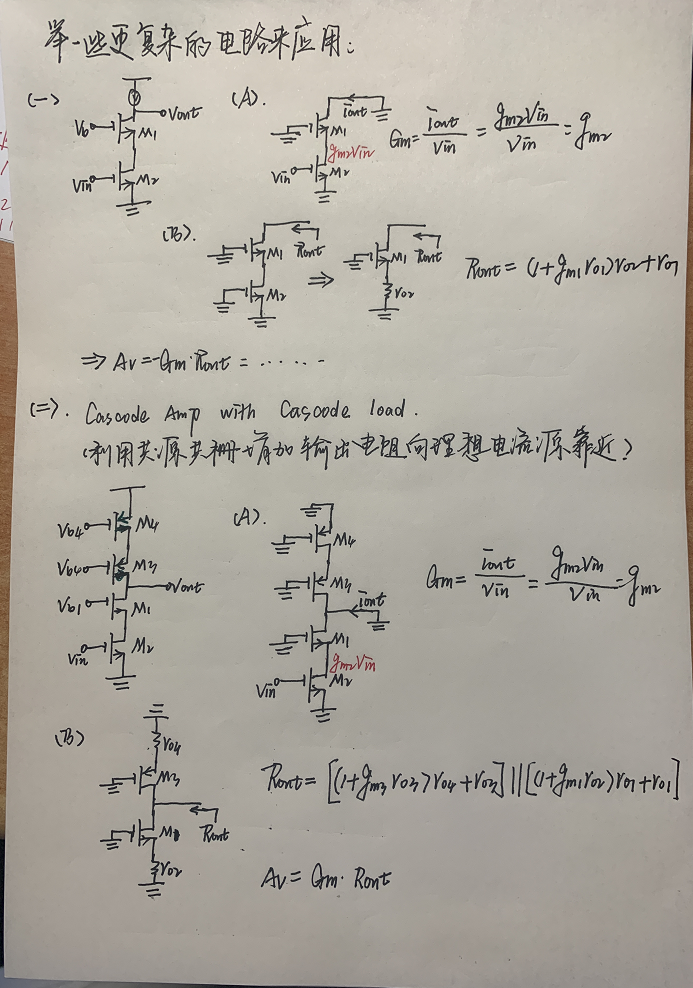 举一些更复杂的电路来应用:
(一)
Vout
Vb
M1
Vin
M2
(A).
iout
M1
gm2Vin
Vin
M2
Gm = iout/Vin = gm2Vin/Vin = gm2
(B).
M1
Rout
M2
⇒
M1
Rout
ro2
Rout = (1+gm1ro1)ro2+ro1
⇒ Av=-Gm·Rout = ......
(二). Cascode Amp with Cascode load.
(利用共源共栅增加输出电阻向理想电流源靠近)
Vb4
M4
Vb4
M3
Vout
Vb1
M1
Vin
M2
(A).
M4
M3
iout
M1
gm2Vin
Vin
M2
Gm = iout/Vin = gm2Vin/Vin = gm2
(B)
ro4
M3
M1
Rout
ro2
Rout = [(1+gm3ro3)ro4+ro3]||[(1+gm1ro2)ro1+ro1]
Av = Gm·Rout